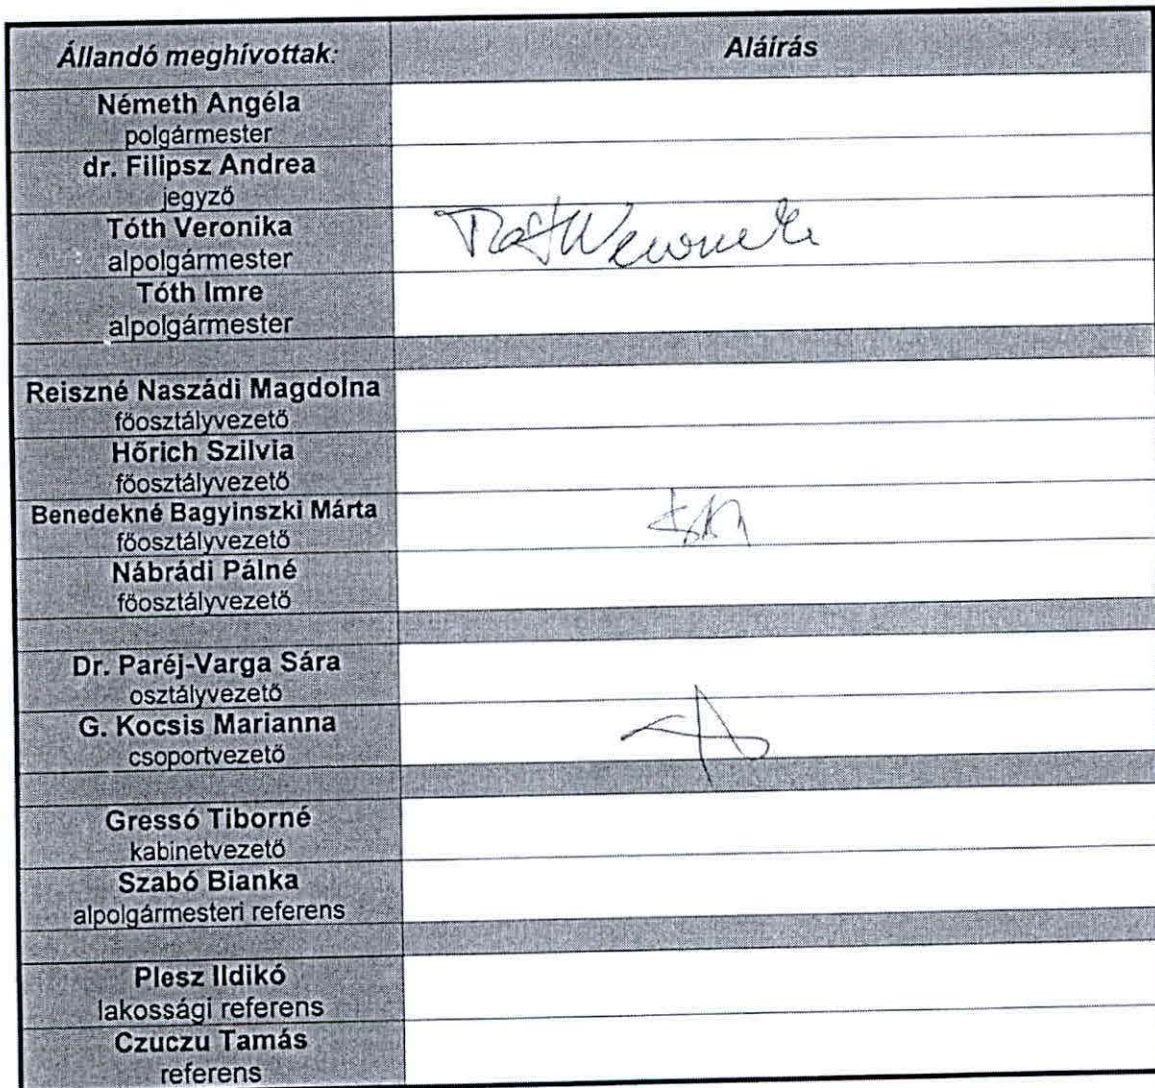 Állandó meghívottak: Aláírás
Németh Angéla
polgármester
dr. Filipsz Andrea
jegyző
Tóth Veronika
alpolgármester
Tóth Imre
alpolgármester
Reiszné Naszádi Magdolna
főosztályvezető
Hőrich Szilvia
főosztályvezető
Benedekné Bagyinszki Márta
főosztályvezető
Nábrádi Pálné
főosztályvezető
Dr. Paréj-Varga Sára
osztályvezető
G. Kocsis Marianna
csoportvezető
Gressó Tiborné
kabinetvezető
Szabó Bianka
alpolgármesteri referens
Plesz Ildikó
lakossági referens
Czuczu Tamás
referens